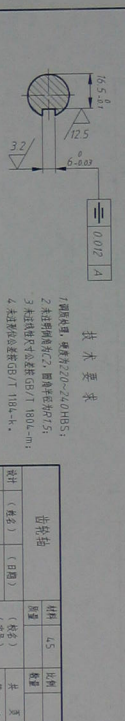 16.5 0 -0.1
12.5
6 0 -0.03
3.2
0.012 A
技术要求
1.调质处理，硬度为220~240HBS；
2.未注明倒角为C2，圆角半径为R1.5；
3.未注线性尺寸公差按GB/T 1804-m；
4.未注形位公差按GB/T 1184-k。
齿轮轴
材料 45 比例
质量 数量
设计 (姓名) (日期) (校名)
共 页